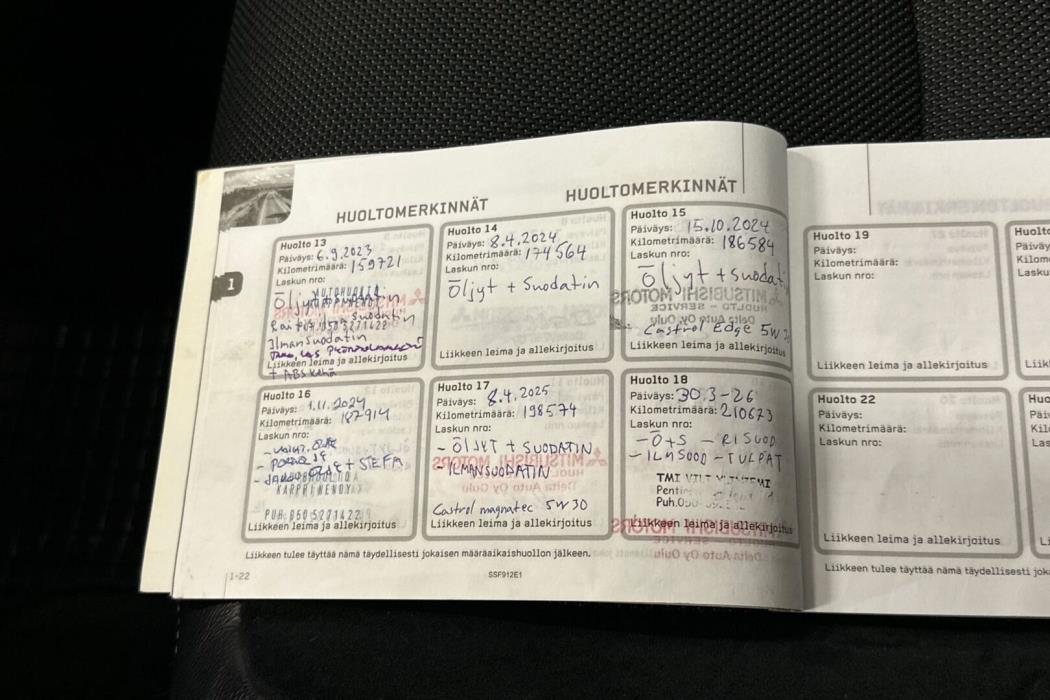 HUOLTOMERKINNÄT
HUOLTOMERKINNÄT
1
Huolto 13
Päiväys: 6.9.2023
Kilometrimäärä: 159721
Laskun nro:
Öljyt + suodatin
Suodatin
Ilmansuodatin
Liikkeen leima ja allekirjoitus
+ ABS kehä
Huolto 14
Päiväys: 8.4.2024
Kilometrimäärä: 174564
Laskun nro:
Öljyt + Suodatin
Liikkeen leima ja allekirjoitus
Huolto 15
Päiväys: 15.10.2024
Kilometrimäärä: 186584
Laskun nro:
Öljyt + suodatin
Castrol Edge 5W30
Liikkeen leima ja allekirjoitus
Huolto 16
Päiväys: 1.11.2024
Kilometrimäärä: 187914
Laskun nro:
+ STEFA
PUH: 050 5271422
Liikkeen leima ja allekirjoitus
Huolto 17
Päiväys: 8.4.2025
Kilometrimäärä: 198574
Laskun nro:
- ÖLJYT + SUODATIN
- ILMANSUODATIN
Castrol magnatec 5W30
Liikkeen leima ja allekirjoitus
Huolto 18
Päiväys: 30.3-26
Kilometrimäärä: 210673
Laskun nro:
- Ö+S - RISUOD
- ILMSUOD - TULPAT
TMI
Puh.
Liikkeen leima ja allekirjoitus
Liikkeen tulee täyttää nämä täydellisesti jokaisen määräaikaishuollon jälkeen.
1-22
SSF912E1
Huolto 19
Päiväys:
Kilometrimäärä:
Laskun nro:
Liikkeen leima ja allekirjoitus
Huolto 22
Päiväys:
Kilometrimäärä:
Laskun nro:
Liikkeen leima ja allekirjoitus
Liikkeen tulee täyttää nämä täydellisesti